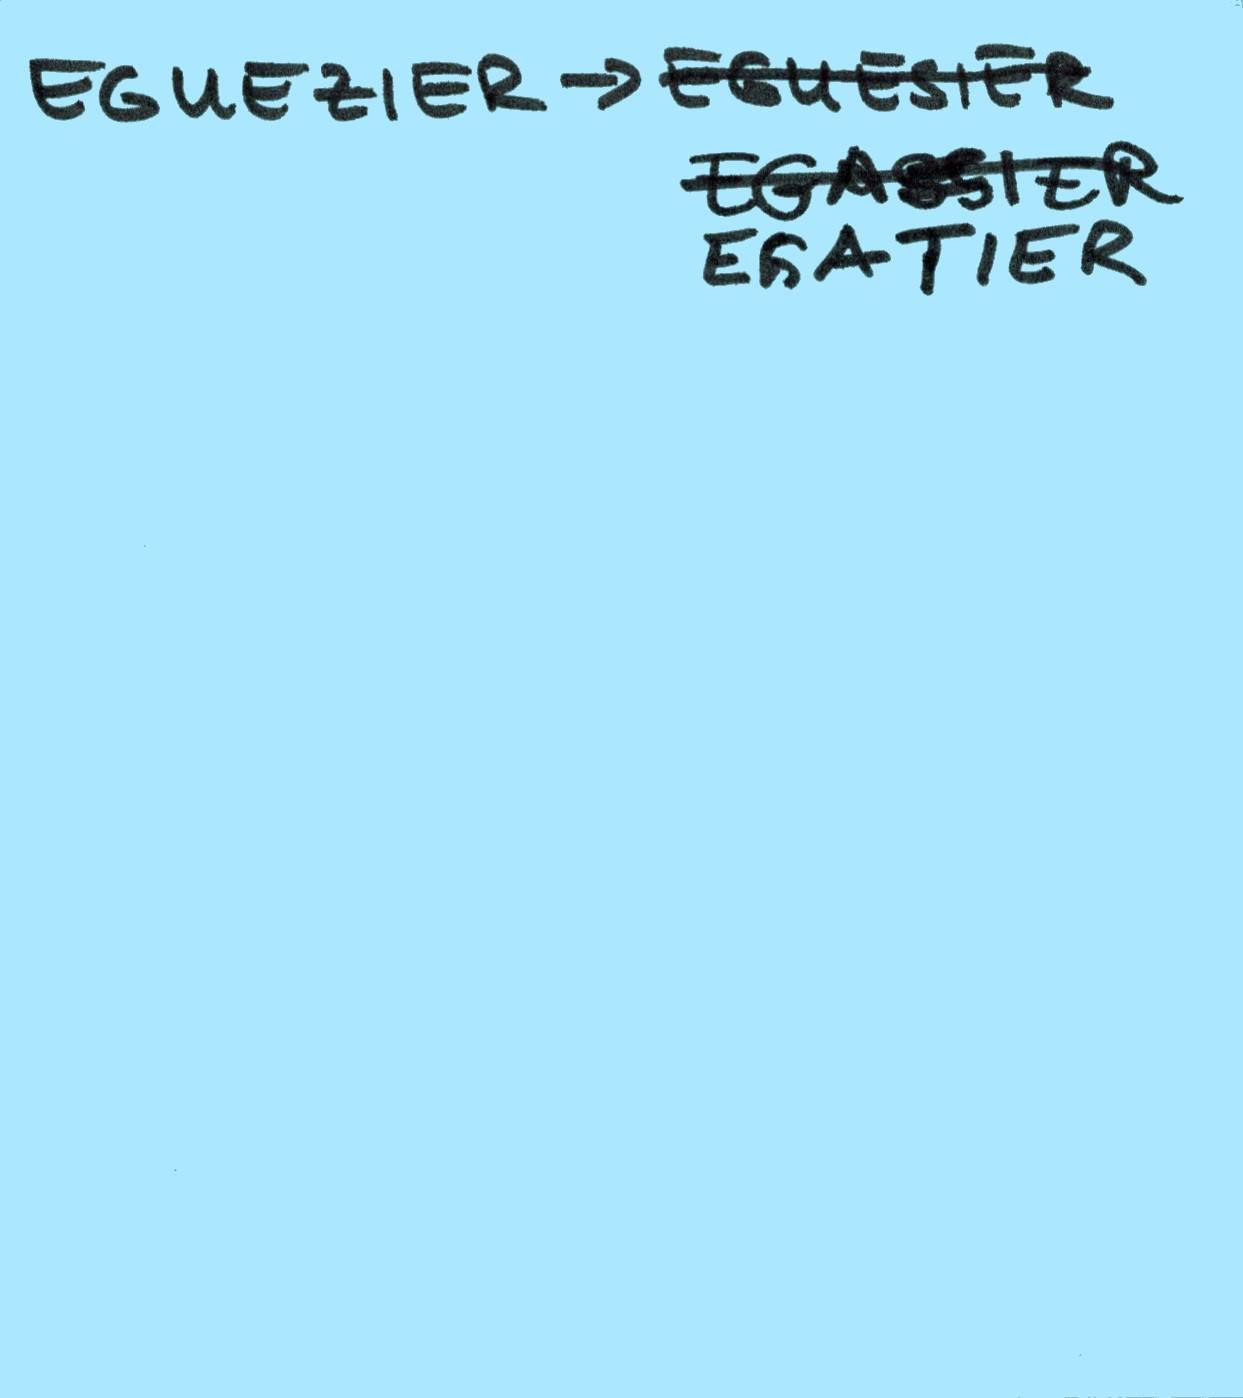 EGUEZIER → EGUESIER
EGASSIER
EGATIER